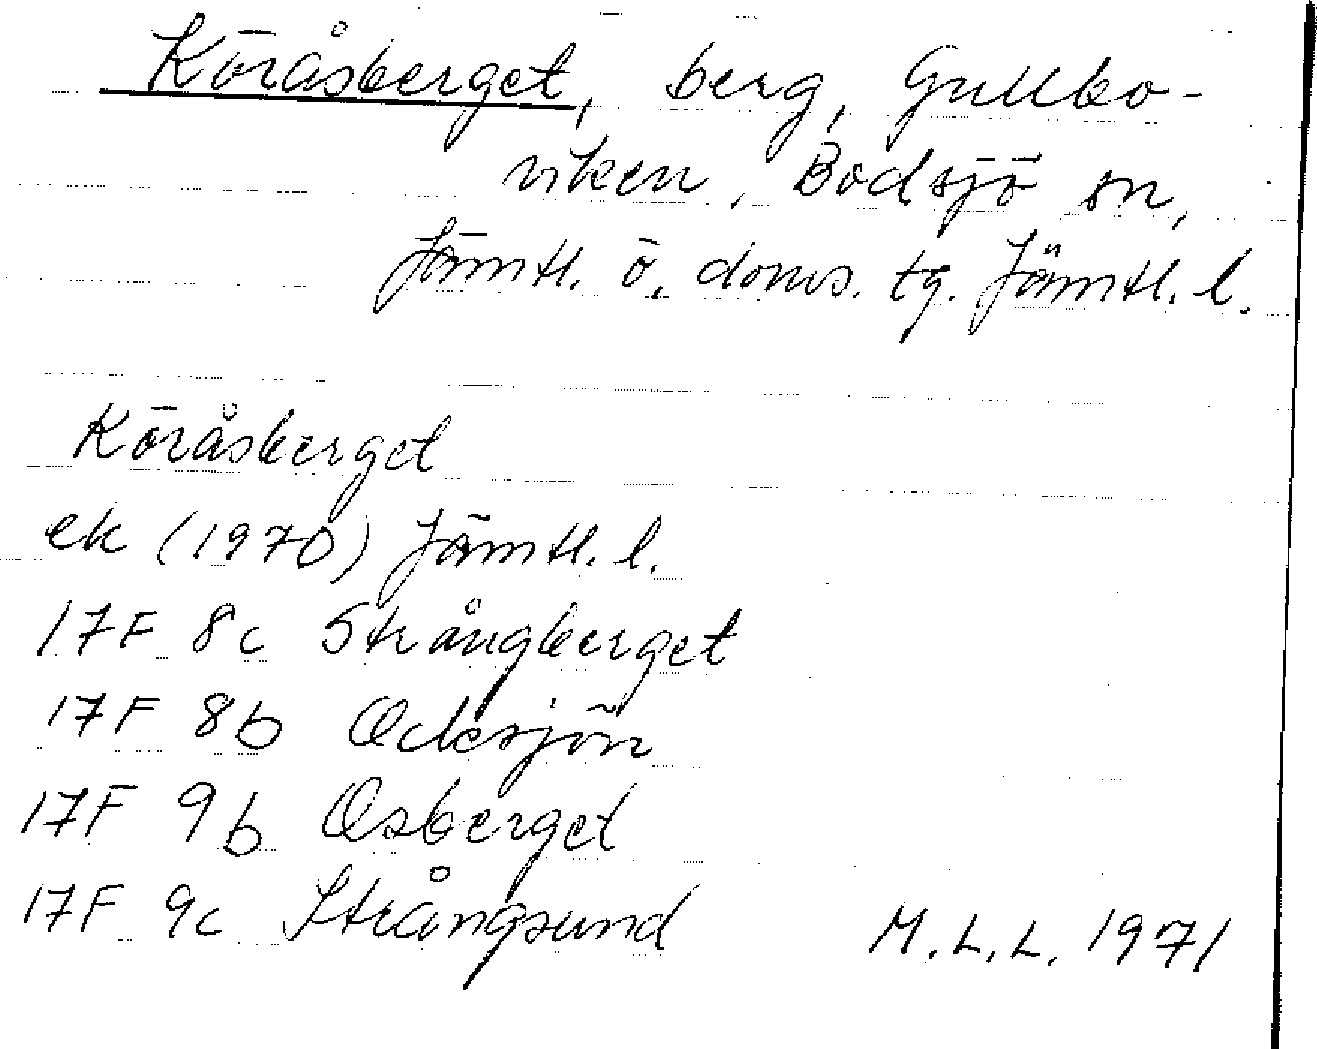 Köråsberget, berg, Gullbo-
viken, Bodsjö sn,
Jämtl. ö. doms. tg. Jämtl. l.
Köråsberget
ek (1970) Jämtl. l.
17F 8c Strångberget
17F 8b Ocksjön
17F 9b Osberget
17F 9c Strångsund
M.L.L. 1971